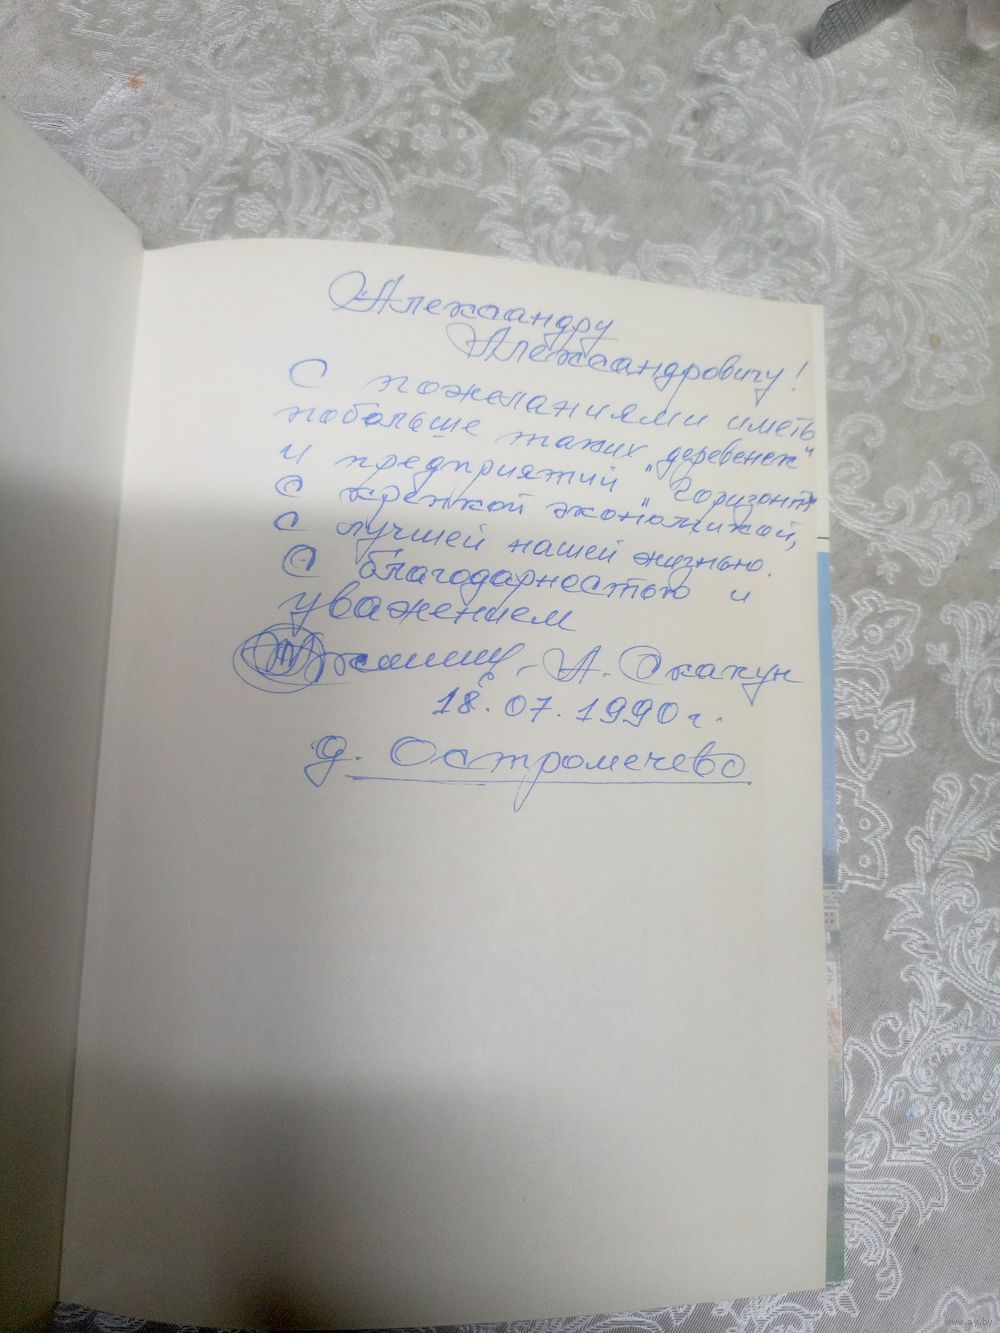 Александру
Александровичу!
С пожеланиями иметь
побольше таких „деревенек"
и предприятий „Горизонт"
с крепкой экономикой,
с лучшей нашей жизнью.
С благодарностью и
уважением
А. Скакун
18.07.1990 г.
д. Остромечево
www.ay.by